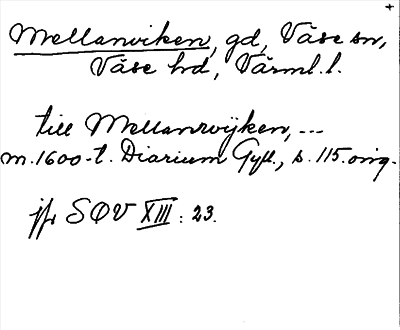 +
Mellanviken, gd, Väse sn,
Väse hd, Värml. l.
till Mellanwijken, ---
m. 1600-t. Diarium Gyll., s. 115. orig.
jfr SOV XIII: 23.